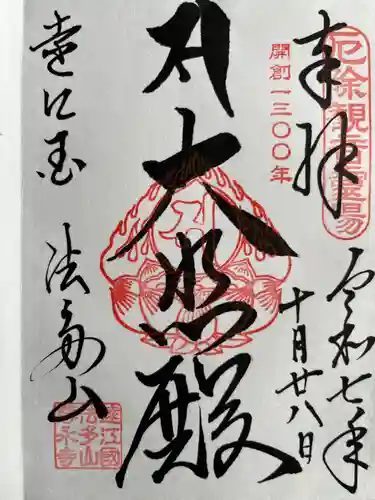 厄除観音霊場
奉拝
開創一三〇〇年
令和七年
十月廿八日
大悲殿
遠江国 法多山
遠江國
法多山
永寺